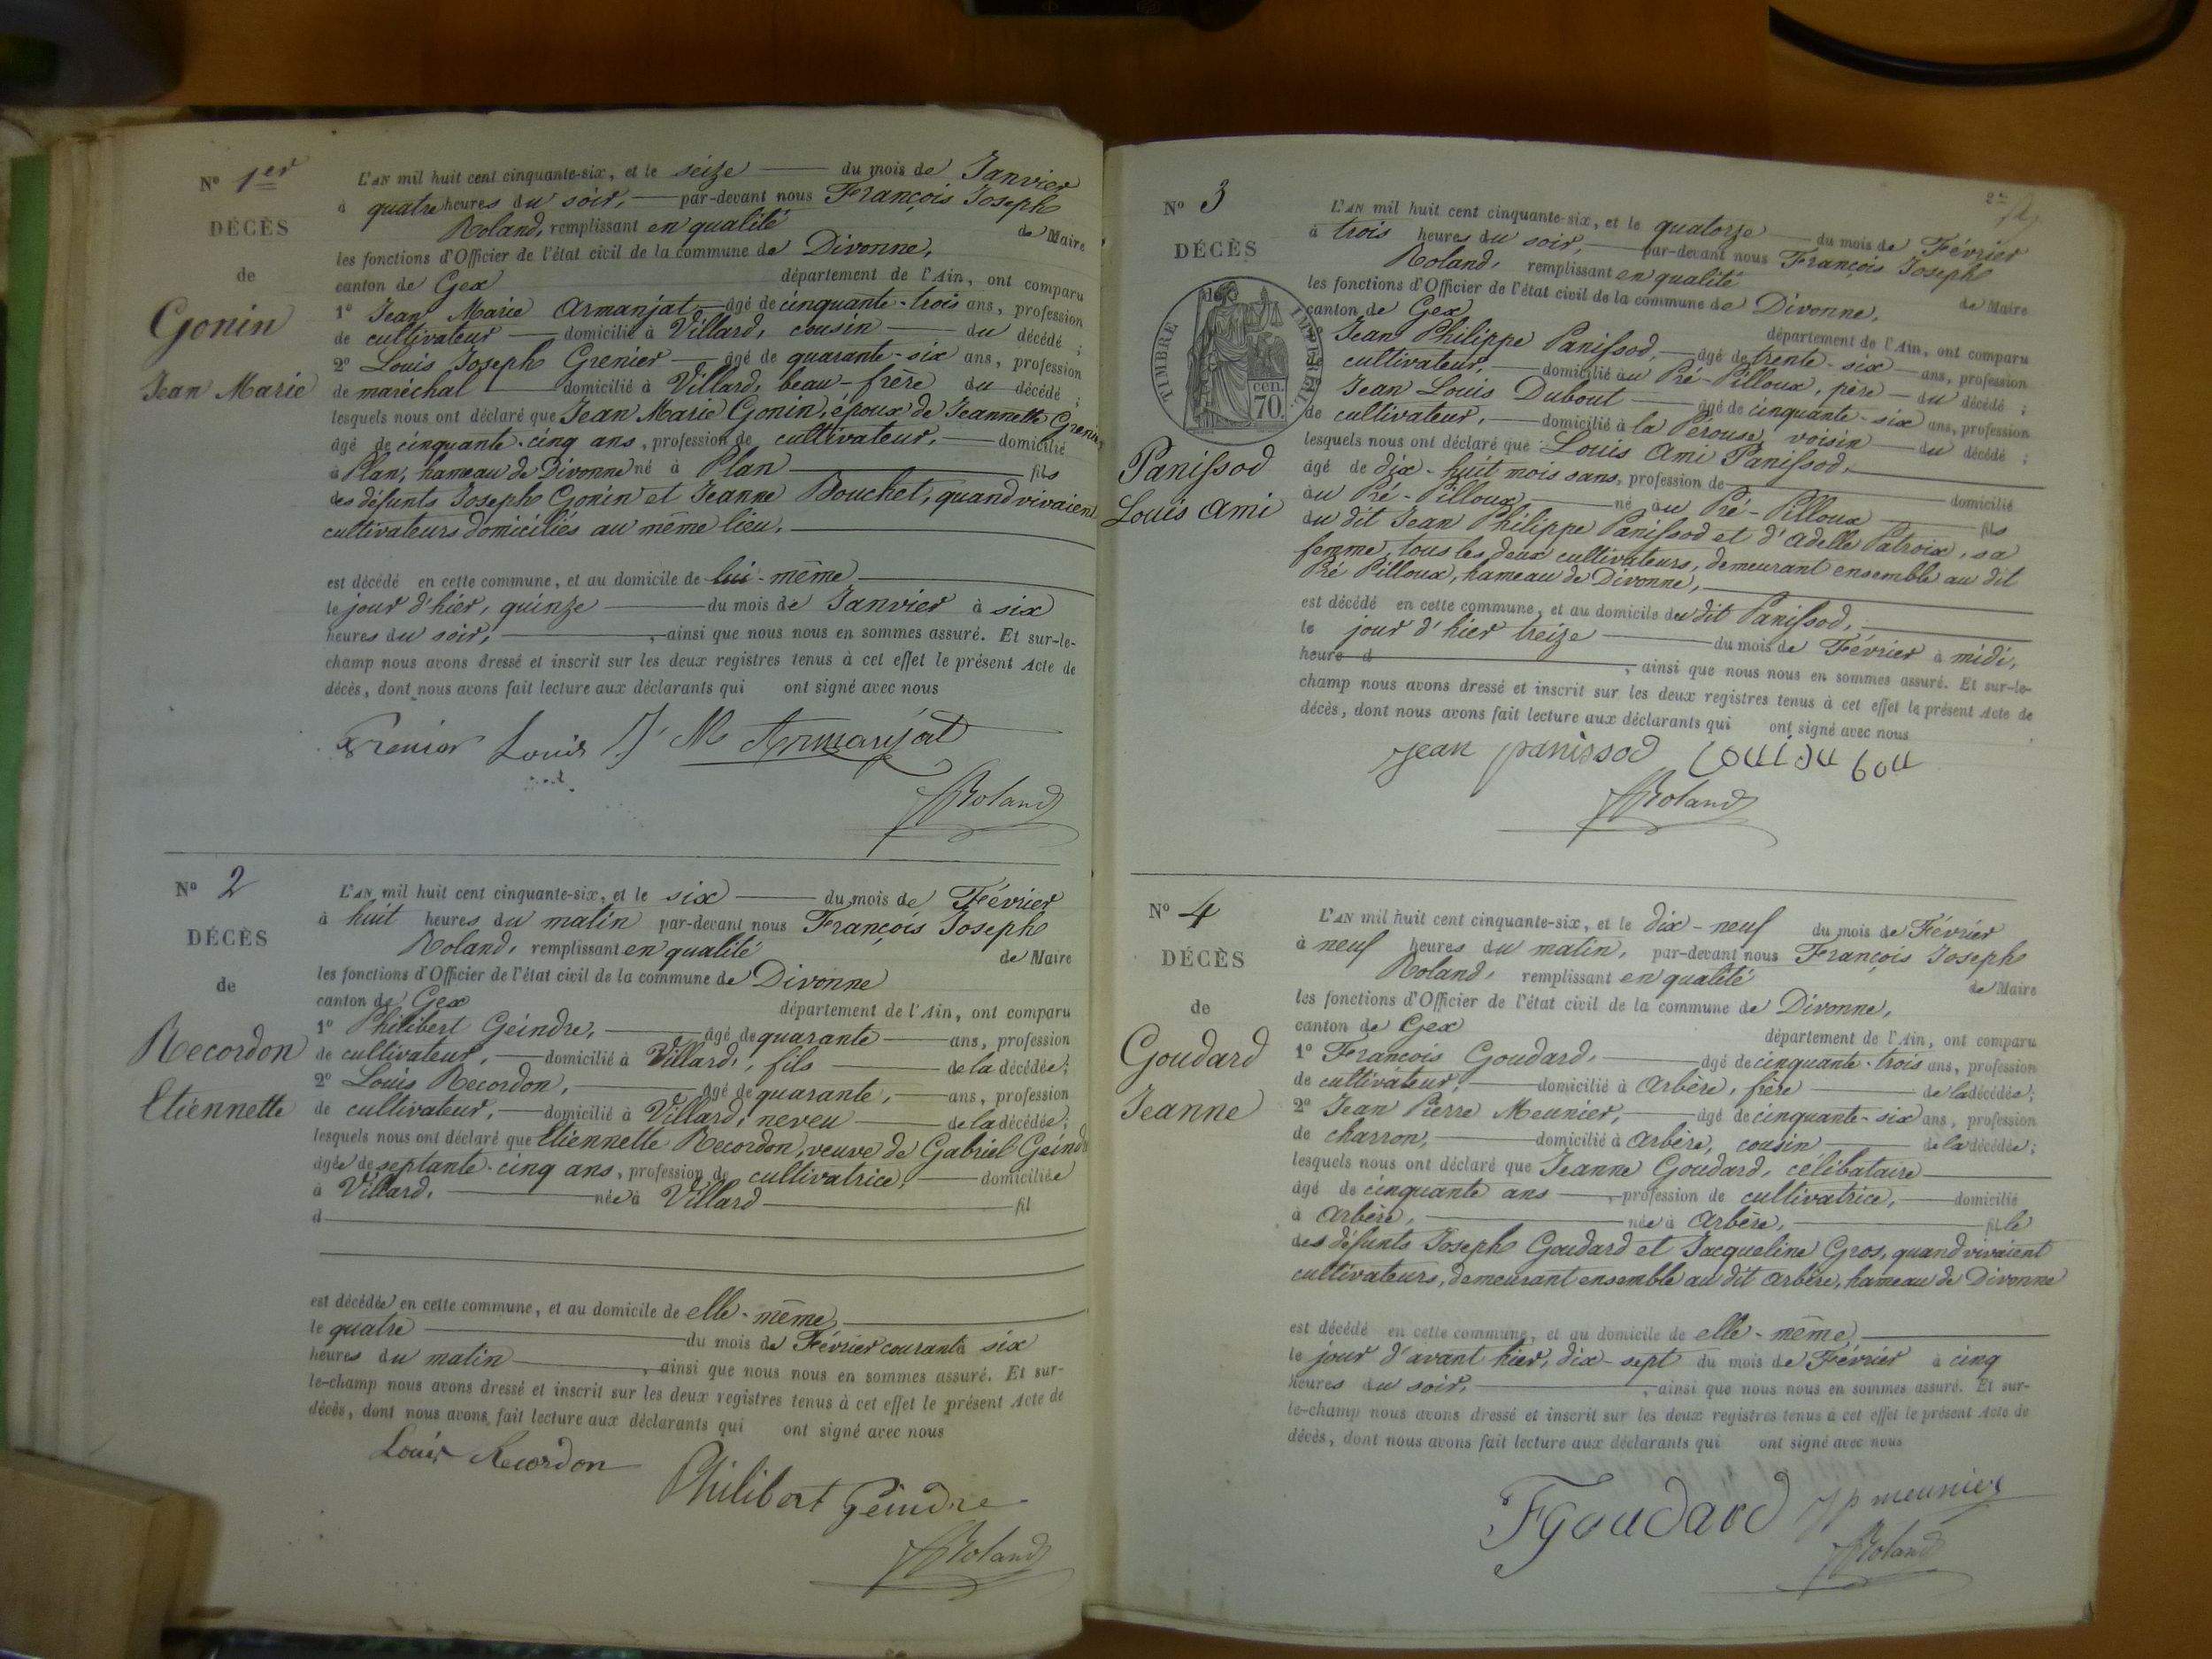 N° 1er
DÉCÈS
de
Gonin
Jean Marie
L'AN mil huit cent cinquante-six, et le seize du mois de Janvier
à quatre heures du soir, par-devant nous François Joseph
Roland, remplissant en qualité de Maire
les fonctions d'Officier de l'état civil de la commune de Divonne,
canton de Gex département de l'Ain, ont comparu
1° Jean Marie Armanjat, âgé de cinquante-trois ans, profession
de cultivateur domicilié à Villard, cousin du décédé ;
2° Louis Joseph Grenier âgé de quarante-six ans, profession
de maréchal domicilié à Villard, beau-frère du décédé ;
lesquels nous ont déclaré que Jean Marie Gonin, époux de Jeannette Grenier
âgé de cinquante-cinq ans, profession de cultivateur, domicilié
à Plan, hameau de Divonne né à Plan fils
des défunts Joseph Gonin et Jeanne Bouchet, quand vivaient
cultivateurs domiciliés au même lieu.
est décédé en cette commune, et au domicile de lui-même
le jour d'hier, quinze du mois de Janvier à six
heures du soir, , ainsi que nous nous en sommes assuré. Et sur-le-
champ nous avons dressé et inscrit sur les deux registres tenus à cet effet le présent Acte de
décès, dont nous avons fait lecture aux déclarants qui ont signé avec nous
Grenier Louis J M Armanjat
Roland
N° 2
DÉCÈS
de
Recordon
Etiennette
L'AN mil huit cent cinquante-six, et le six du mois de Février
à huit heures du matin par-devant nous François Joseph
Roland, remplissant en qualité de Maire
les fonctions d'Officier de l'état civil de la commune de Divonne
canton de Gex département de l'Ain, ont comparu
1° Philibert Geindre, âgé de quarante ans, profession
de cultivateur, domicilié à Villard, fils de la décédée ;
2° Louis Recordon, âgé de quarante, ans, profession
de cultivateur, domicilié à Villard, neveu de la décédée ;
lesquels nous ont déclaré que Etiennette Recordon, veuve de Gabriel Geindre
âgée de septante-cinq ans, profession de cultivatrice, domiciliée
à Villard, née à Villard fil
d
est décédée en cette commune, et au domicile de elle-même,
le quatre du mois de Février courant à six
heures du matin , ainsi que nous nous en sommes assuré. Et sur-
le-champ nous avons dressé et inscrit sur les deux registres tenus à cet effet le présent Acte de
décès, dont nous avons fait lecture aux déclarants qui ont signé avec nous
Louis Recordon Philibert Geindre
Roland
N° 3
DÉCÈS
de
TIMBRE IMPERIAL
70 cen.
Panissod
Louis Ami
L'AN mil huit cent cinquante-six, et le quatorze du mois de Février
à trois heures du soir, par-devant nous François Joseph
Roland, remplissant en qualité de Maire
les fonctions d'Officier de l'état civil de la commune de Divonne,
canton de Gex département de l'Ain, ont comparu
Jean Philippe Panissod, âgé de trente-six ans, profession
cultivateur, domicilié au Pré-Pilloux, père du décédé ;
Jean Louis Dubout âgé de cinquante-six ans, profession
de cultivateur, domicilié à la Pérouse, voisin du décédé ;
lesquels nous ont déclaré que Louis Ami Panissod,
âgé de dix-huit mois sans, profession de domicilié
au Pré-Pilloux né au Pré-Pilloux fils
du dit Jean Philippe Panissod et d'Adelle Patroix, sa
femme, tous les deux cultivateurs, demeurant ensemble au dit
Pré Pilloux, hameau de Divonne,
est décédé en cette commune, et au domicile du dit Panissod,
le jour d'hier treize du mois de Février à midi,
heure d , ainsi que nous nous en sommes assuré. Et sur-le-
champ nous avons dressé et inscrit sur les deux registres tenus à cet effet le présent Acte de
décès, dont nous avons fait lecture aux déclarants qui ont signé avec nous
jean panissod
Roland
N° 4
DÉCÈS
de
Goudard
Jeanne
L'AN mil huit cent cinquante-six, et le dix-neuf du mois de Février
à neuf heures du matin, par-devant nous François Joseph
Roland, remplissant en qualité de Maire
les fonctions d'Officier de l'état civil de la commune de Divonne,
canton de Gex département de l'Ain, ont comparu
1° François Goudard, âgé de cinquante-trois ans, profession
de cultivateur, domicilié à Arbère, frère de la décédée ;
2° Jean Pierre Meunier, âgé de cinquante-six ans, profession
de charron, domicilié à Arbère, cousin de la décédée ;
lesquels nous ont déclaré que Jeanne Goudard, célibataire
âgé de cinquante ans , profession de cultivatrice, domicilié
à Arbère, née à Arbère, fille
des défunts Joseph Goudard et Jacqueline Gros, quand vivaient
cultivateurs, demeurant ensemble au dit Arbère, hameau de Divonne
est décédé en cette commune, et au domicile de elle-même,
le jour d'avant hier, dix-sept du mois de Février à cinq
heures du soir, , ainsi que nous nous en sommes assuré. Et sur-
le-champ nous avons dressé et inscrit sur les deux registres tenus à cet effet le présent Acte de
décès, dont nous avons fait lecture aux déclarants qui ont signé avec nous
F goudard J p meunier
Roland